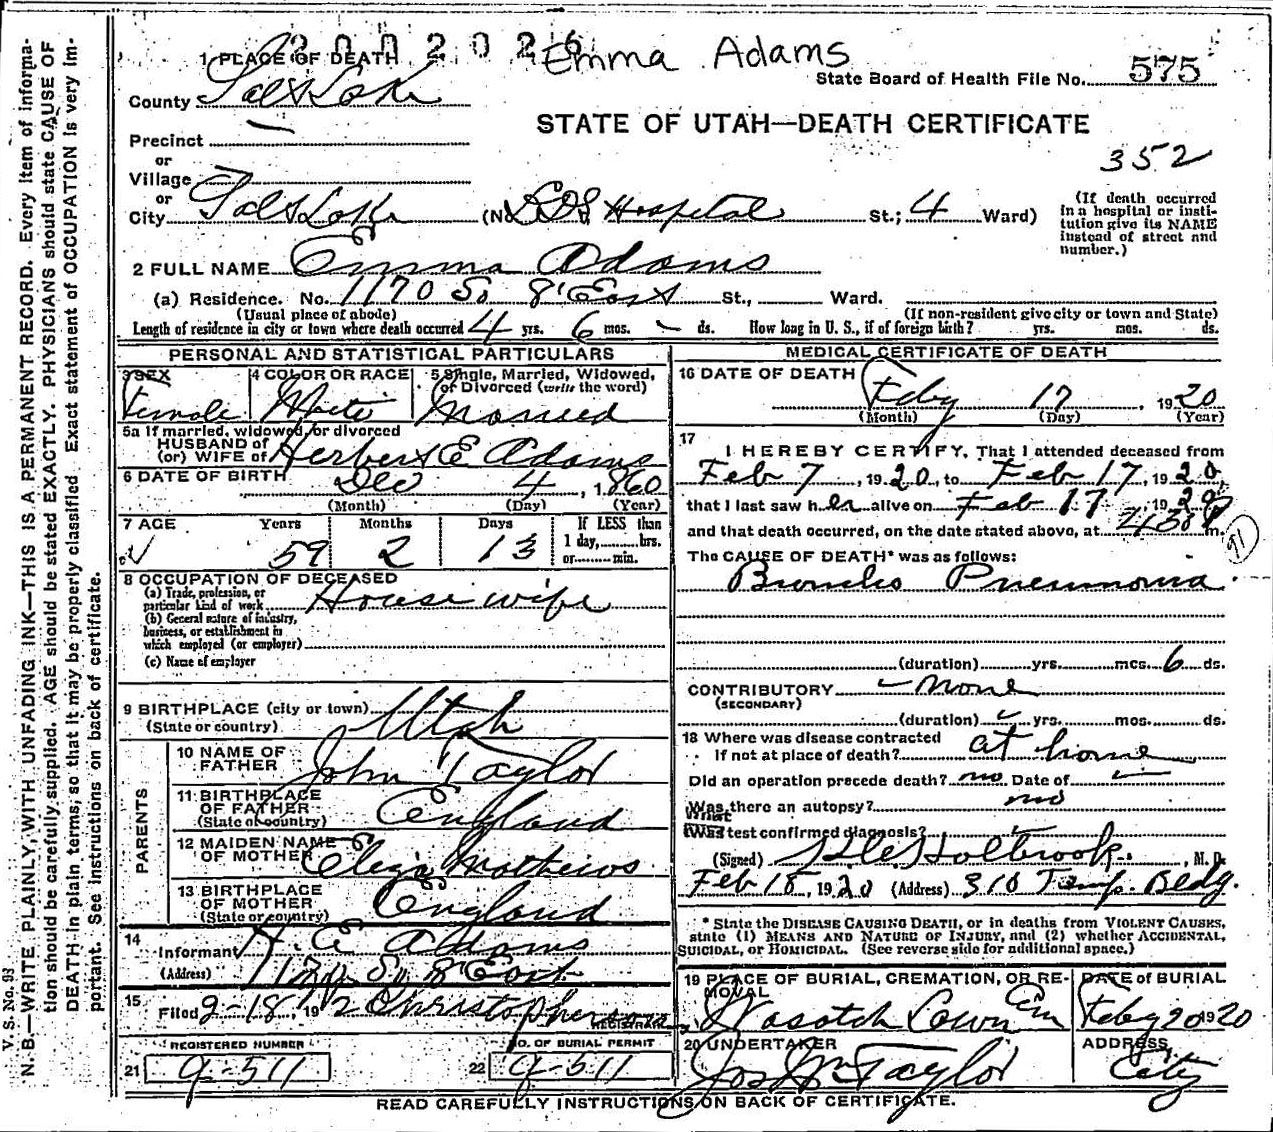 2002026 Emma Adams
1 PLACE OF DEATH
State Board of Health File No. 575
County Salt Lake
STATE OF UTAH—DEATH CERTIFICATE
Precinct —
352
or
Village
or
City Salt Lake (No LDS Hospital St.; 4 Ward)
(If death occurred in a hospital or insti-
tution give its NAME
instead of street and
number.)
2 FULL NAME Emma Adams
(a) Residence. No. 1170 So 8' East St., Ward.
(Usual place of abode) (If non-resident give city or town and State)
Length of residence in city or town where death occurred 4 yrs. 6 mos. – ds. How long in U. S., if of foreign birth? yrs. mos. ds.
PERSONAL AND STATISTICAL PARTICULARS
3 SEX Female
4 COLOR OR RACE White
5 Single, Married, Widowed,
or Divorced (write the word)
Married
5a If married, widowed, or divorced
HUSBAND of
(or) WIFE of Herbert E Adams
6 DATE OF BIRTH Dec 4, 1860
(Month) (Day) (Year)
7 AGE Years Months Days If LESS than
1 day, hrs.
or min.
59 2 13
8 OCCUPATION OF DECEASED
(a) Trade, profession, or
particular kind of work House wife
(b) General nature of industry,
business, or establishment in
which employed (or employer)
(c) Name of employer
9 BIRTHPLACE (city or town)
(State or country) Utah
PARENTS
10 NAME OF
FATHER John Taylor
11 BIRTHPLACE
OF FATHER
(State or country) England
12 MAIDEN NAME
OF MOTHER Eliza Mathews
13 BIRTHPLACE
OF MOTHER
(State or country) England
14 Informant H. E Adams
(Address) 1170 So 8 East
15 Filed 2-18, 19 Christopherson
REGISTRAR
REGISTERED NUMBER NO. OF BURIAL PERMIT
21 9-511 22 9-511
MEDICAL CERTIFICATE OF DEATH
16 DATE OF DEATH
Feby 17, 1920
(Month) (Day) (Year)
17 I HEREBY CERTIFY, That I attended deceased from
Feb 7, 1920, to Feb 17, 1920
that I last saw her alive on Feb 17, 1920,
and that death occurred, on the date stated above, at 430 P m.
The CAUSE OF DEATH* was as follows:
91
Broncho Pneumonia
(duration) yrs. mos. 6 ds.
CONTRIBUTORY – none
(SECONDARY)
(duration) yrs. mos. ds.
18 Where was disease contracted
If not at place of death? at home
Did an operation precede death? no Date of —
Was there an autopsy? no
What
test confirmed diagnosis? –
(Signed) Holbrook, M. D.
Feb 18, 1920 (Address) 310 Temp. Bldg.
* State the DISEASE CAUSING DEATH, or in deaths from VIOLENT CAUSES,
state (1) MEANS AND NATURE OF INJURY, and (2) whether ACCIDENTAL,
SUICIDAL, or HOMICIDAL. (See reverse side for additional space.)
19 PLACE OF BURIAL, CREMATION, OR RE-
MOVAL
Wasatch Lawn Cem
DATE of BURIAL
Feby 20 1920
20 UNDERTAKER
Jos Wm Taylor
ADDRESS
City
READ CAREFULLY INSTRUCTIONS ON BACK OF CERTIFICATE.
V. S. No. 98
N. B.—WRITE PLAINLY, WITH UNFADING INK—THIS IS A PERMANENT RECORD. Every item of informa-
tion should be carefully supplied. AGE should be stated EXACTLY. PHYSICIANS should state CAUSE OF
DEATH in plain terms, so that it may be properly classified. Exact statement of OCCUPATION is very im-
portant. See instructions on back of certificate.